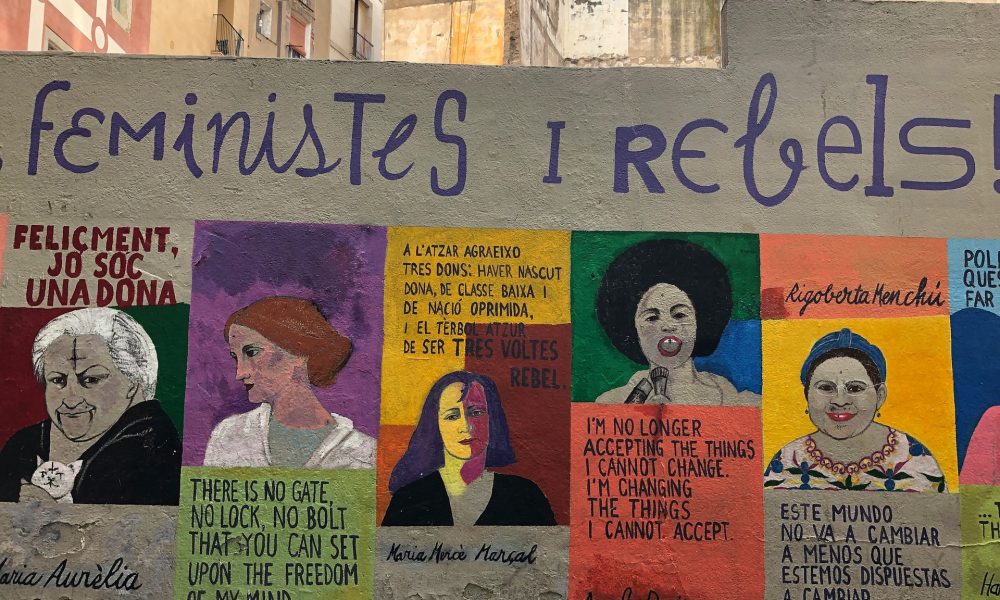 FEMINISTES I REBELS!
FELIÇMENT,
JO SÓC
UNA DONA
Maria Aurèlia
THERE IS NO GATE,
NO LOCK, NO BOLT
THAT YOU CAN SET
UPON THE FREEDOM
OF MY MIND
A L'ATZAR AGRAEIXO
TRES DONS: HAVER NASCUT
DONA, DE CLASSE BAIXA I
DE NACIÓ OPRIMIDA,
I EL TÈRBOL ATZUR
DE SER TRES VOLTES
REBEL.
Maria Mercè Marçal
I'M NO LONGER
ACCEPTING THE THINGS
I CANNOT CHANGE.
I'M CHANGING
THE THINGS
I CANNOT ACCEPT.
Rigoberta Menchú
ESTE MUNDO
NO VA A CAMBIAR
A MENOS QUE
ESTEMOS DISPUESTAS
A CAMBIAR
QUE
FAR